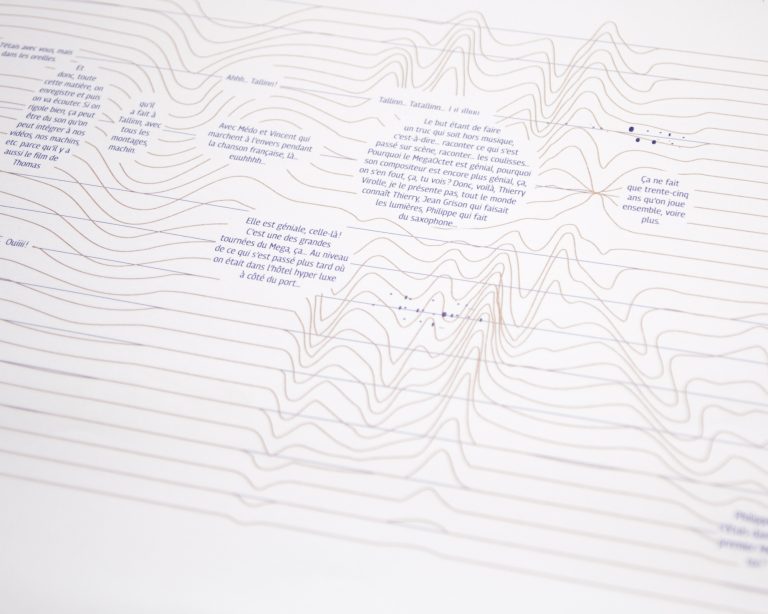 J'étais avec vous, mais
dans les oreilles
Et
donc, toute
cette matière, on
enregistre et puis
on va écouter. Si on
rigole bien, ça peut
être du son qu'on
peut intégrer à nos
vidéos, nos machins,
etc. parce qu'il y a
aussi le film de
Thomas
qu'il
a fait à
Tallinn, avec
tous les
montages,
machin.
Ahhh... Tallinn!
Avec Médo et Vincent qui
marchent à l'envers pendant
la chanson française, là...
euuhhhh...
Tallinn... Tatallinn...
Le but étant de faire
un truc qui soit hors musique,
c'est-à-dire... raconter ce qui s'est
passé sur scène, raconter... les coulisses...
Pourquoi le MegaOctet est génial, pourquoi
son compositeur est encore plus génial, ça,
on s'en fout, ça, tu vois ? Donc, voilà, Thierry
Virolle, je le présente pas, tout le monde
connaît Thierry, Jean Grison qui faisait
les lumières, Philippe qui fait
du saxophone...
Ça ne fait
que trente-cinq
ans qu'on joue
ensemble, voire
plus.
Elle est géniale, celle-là!
C'est une des grandes
tournées du Mega, ça... Au niveau
de ce qui s'est passé plus tard où
on était dans l'hôtel hyper luxe
à côté du port...
Ouiiii!
Philippe
c'était dans
premier